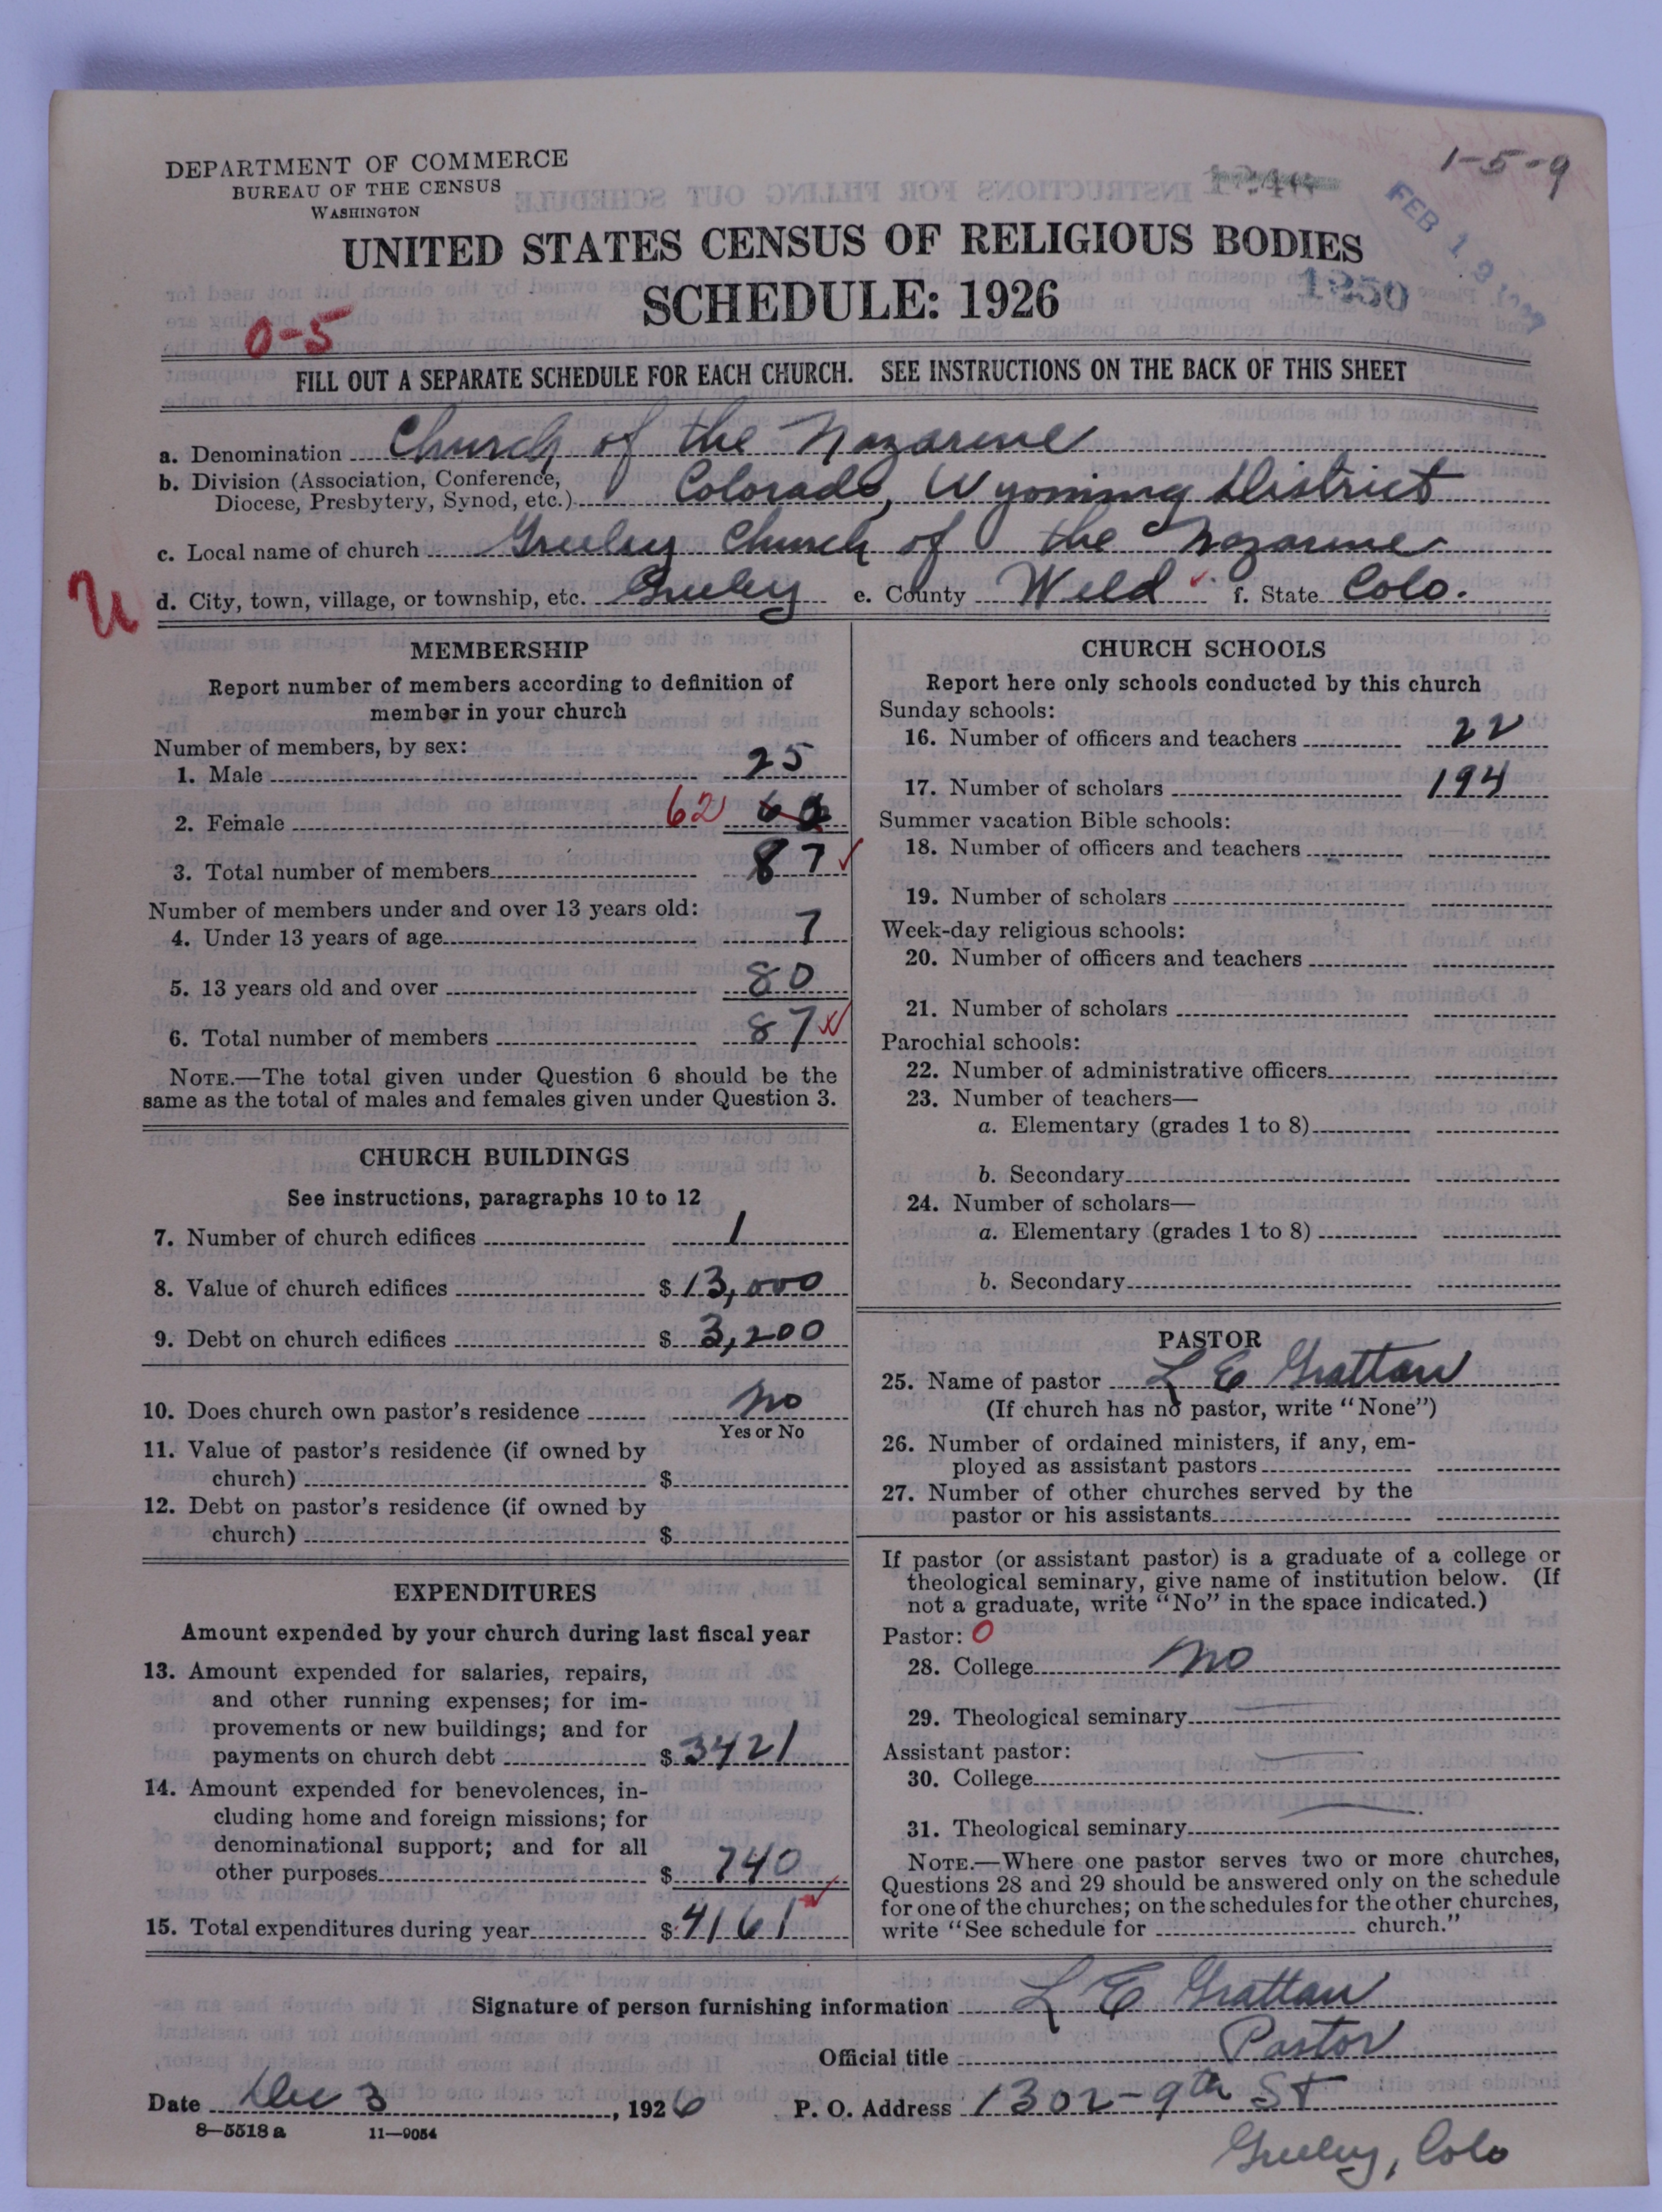 DEPARTMENT OF COMMERCE
BUREAU OF THE CENSUS
WASHINGTON
1-5-9
FEB 19 1927
UNITED STATES CENSUS OF RELIGIOUS BODIES
1250
SCHEDULE: 1926
0-5
FILL OUT A SEPARATE SCHEDULE FOR EACH CHURCH. SEE INSTRUCTIONS ON THE BACK OF THIS SHEET
a. Denomination Church of the Nazarene
b. Division (Association, Conference, Diocese, Presbytery, Synod, etc.) Colorado, Wyoming District
c. Local name of church Greeley Church of the Nazarene
U
d. City, town, village, or township, etc. Greeley e. County Weld f. State Colo.
MEMBERSHIP
Report number of members according to definition of
member in your church
Number of members, by sex:
1. Male 25
2. Female 62
3. Total number of members 87
Number of members under and over 13 years old:
4. Under 13 years of age 7
5. 13 years old and over 80
6. Total number of members 87
NOTE.—The total given under Question 6 should be the
same as the total of males and females given under Question 3.
CHURCH BUILDINGS
See instructions, paragraphs 10 to 12
7. Number of church edifices 1
8. Value of church edifices $ 13,000
9. Debt on church edifices $ 3,200
10. Does church own pastor's residence No
Yes or No
11. Value of pastor's residence (if owned by
church) $
12. Debt on pastor's residence (if owned by
church) $
EXPENDITURES
Amount expended by your church during last fiscal year
13. Amount expended for salaries, repairs,
and other running expenses; for im-
provements or new buildings; and for
payments on church debt $ 3421
14. Amount expended for benevolences, in-
cluding home and foreign missions; for
denominational support; and for all
other purposes $ 740
15. Total expenditures during year $ 4161
CHURCH SCHOOLS
Report here only schools conducted by this church
Sunday schools:
16. Number of officers and teachers 22
17. Number of scholars 194
Summer vacation Bible schools:
18. Number of officers and teachers
19. Number of scholars
Week-day religious schools:
20. Number of officers and teachers
21. Number of scholars
Parochial schools:
22. Number of administrative officers
23. Number of teachers—
a. Elementary (grades 1 to 8)
b. Secondary
24. Number of scholars—
a. Elementary (grades 1 to 8)
b. Secondary
PASTOR
25. Name of pastor L E Grattan
(If church has no pastor, write "None")
26. Number of ordained ministers, if any, em-
ployed as assistant pastors
27. Number of other churches served by the
pastor or his assistants
If pastor (or assistant pastor) is a graduate of a college or
theological seminary, give name of institution below. (If
not a graduate, write "No" in the space indicated.)
Pastor: 0
28. College No
29. Theological seminary
Assistant pastor:
30. College
31. Theological seminary
NOTE.—Where one pastor serves two or more churches,
Questions 28 and 29 should be answered only on the schedule
for one of the churches; on the schedules for the other churches,
write "See schedule for church."
Signature of person furnishing information L E Grattan
Official title Pastor
Date Dec 3, 1926 P. O. Address 1302-9th St
8-5518a 11-9054
Greeley, Colo